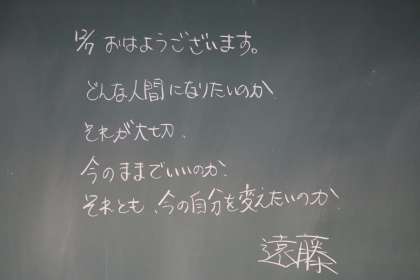 12/7 おはようございます。
どんな人間になりたいのか
それが大切.
今のままでいいのか.
それとも、今の自分を変えたいのか.
遠藤